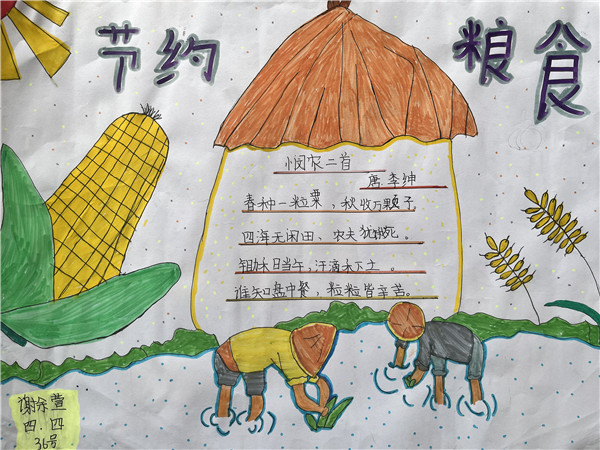 节约 粮食
悯农二首
唐 李绅
春种一粒粟，秋收万颗子
四海无闲田、农夫犹饿死。
锄禾日当午，汗滴禾下土。
谁知盘中餐，粒粒皆辛苦。
谢 萱
四.四
36号